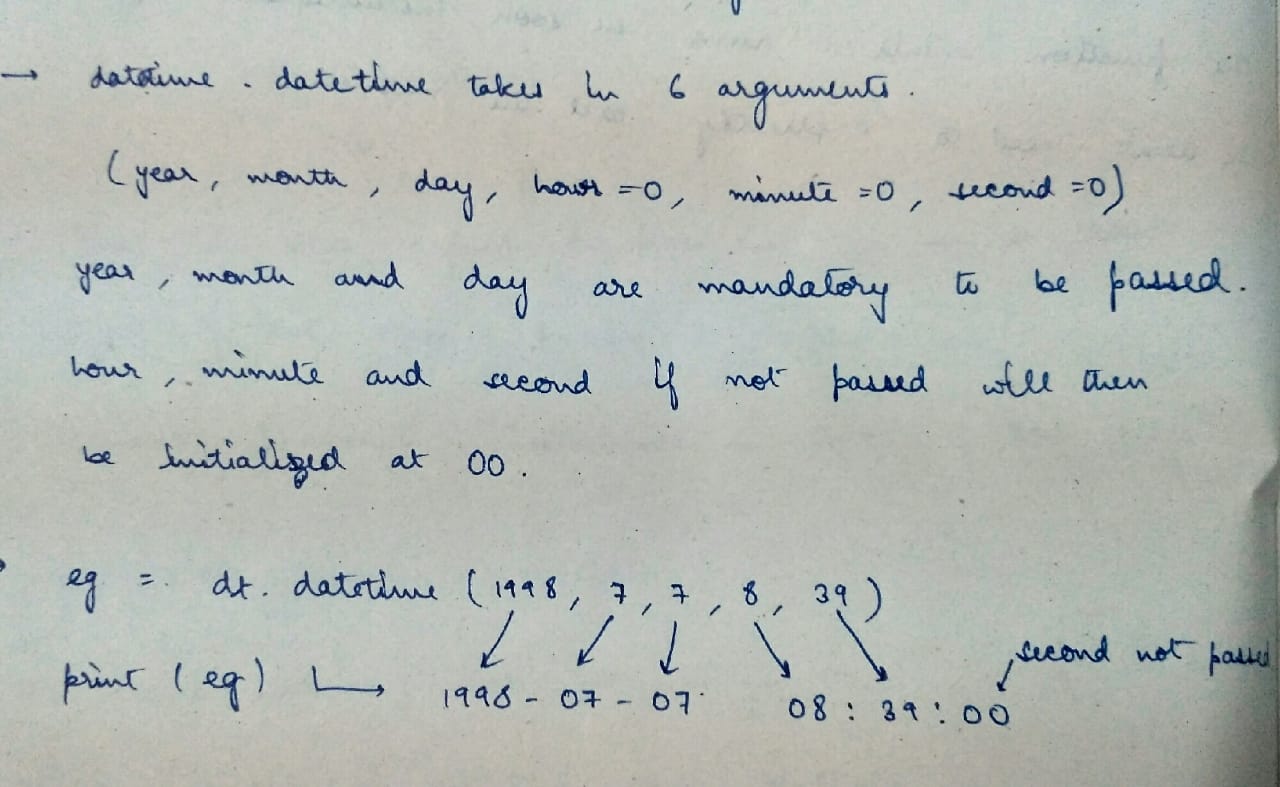 → datetime . datetime takes in 6 arguments .
(year, month, day, hour =0, minute =0, second =0)
year, month and day are mandatory to be passed.
hour, minute and second if not passed will then
be initialized at 00 .
eg = dt. datetime (1998, 7, 7, 8, 39)
second not passed
print (eg) ↳ 1998 - 07 - 07 08 : 39 : 00